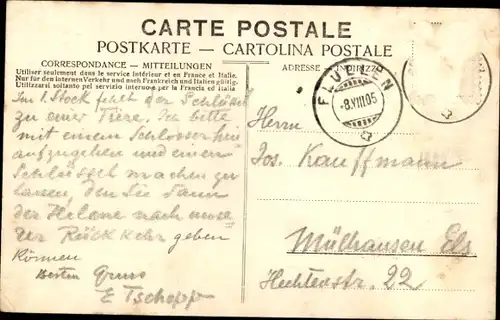 CARTE POSTALE
POSTKARTE — CARTOLINA POSTALE
CORRESPONDANCE - MITTEILUNGEN
Utiliser seulement dans le service intérieur et en France et Italie.
Nur für den internen Verkehr und nach Frankreich und Italien gültig.
Utilizzarsi pel servizio interno e per la Francia ed Italia
ADRESSE
FLUELEN
-8.VIII.05
Im I Stock fehlt der Schlüssel
zu einer Türe. Ich bitte
mit einem Schlosser hin
aufzugehen und einen
Schlüssel machen zu
lassen, den Sie dann
der Helene nach unse
rer Rückkehr geben
können
besten Gruss
E Tschopp
Herrn
Jos. Kauffmann
Mülhausen Els
Hechtenstr. 22